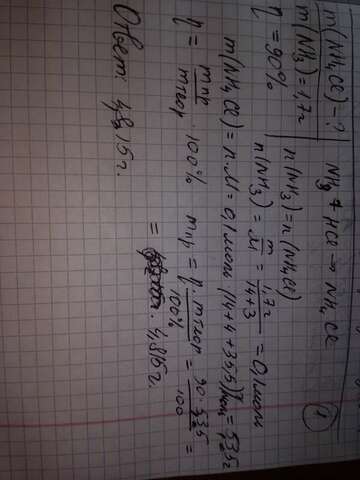 ①
m(NH₄Cl) - ? NH₃ + HCl → NH₄Cl
m(NH₃) = 1,7 г n(NH₃) = n(NH₄Cl)
η = 90% n(NH₃) = m/M = 1,7г/14+3 = 0,1 моль
m(NH₄Cl) = n·M = 0,1 моль · (14+4+35,5) = 5,35 г
η = mпр/mтеор · 100% mпр = η·mтеор/100% = 90·5,35/100 =
= 4,815г.
Ответ: 4,815г.